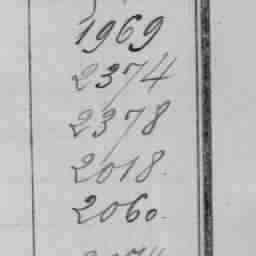 1969
2374
2378
2018.
2060.